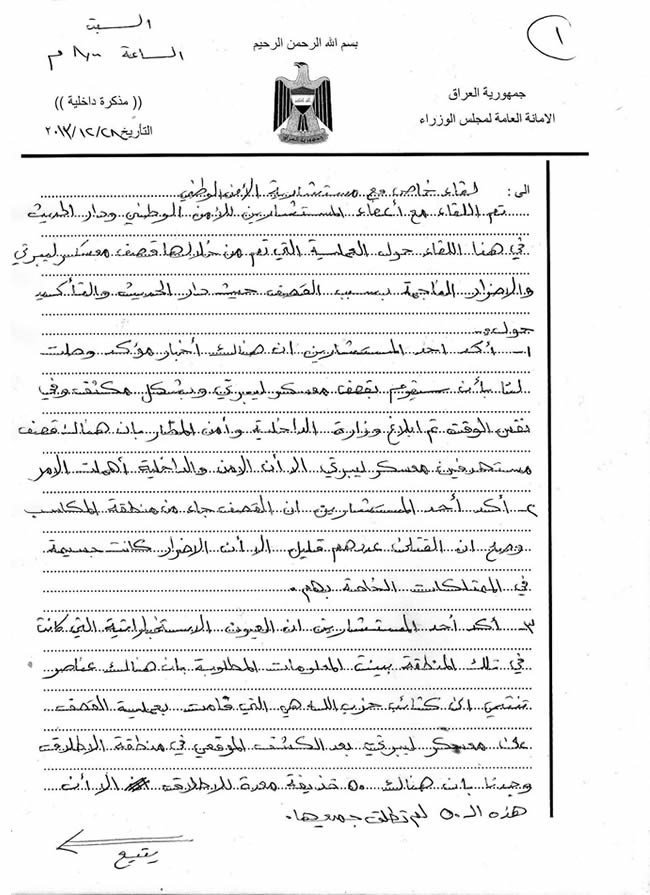 السبت
الساعة ٨/٠٠ م
١
بسم الله الرحمن الرحيم
جمهورية العراق
الامانة العامة لمجلس الوزراء
(( مذكرة داخلية ))
التأريخ ٢٠١٣/١٢/٢٨
الى: لقاء خاص مع مستشارية الأمن الوطني
تم اللقاء مع أعضاء المستشارين للأمن الوطني ودار الحديث
في هذا اللقاء حول العملية التي تم من خلالها قصف معسكر ليبرتي
والاضرار الناجمة بسبب القصف حيث دار الحديث والتأكيد
حول:
١- أكد احد المستشارين ان هنالك أخبار مؤكد وصلت
لنا بأن سيقوم بقصف معسكر ليبرتي وبشكل مكثف وفي
نفس الوقت تم ابلاغ وزارة الداخلية وأمن المطار بان هنالك قصف
مستهدفين معسكر ليبرتي الا أن الامن والداخلية أهملت الامر
٢- أكد أحد المستشارين ان القصف جاء من منطقة المكاسب
وصح ان القتلى عددهم قليل الا أن الاضرار كانت جسيمة
في الممتلكات الخاصة بهم.
٣- أكد أحد المستشارين ان العيون الاستخباراتية التي كانت
في تلك المنطقة بينت المعلومات المطلوبة بان هنالك عناصر
تنتمي الى كتائب حزب الله هي التي قامت بعملية القصف
على معسكر ليبرتي بعد الكشف الموقعي في منطقة الاطلاق
وجدنا بان هنالك ٥٠ قذيفة معدة للاطلاق الا أن
هذه الـ ٥٠ لم تطلق جميعها.
يتبع